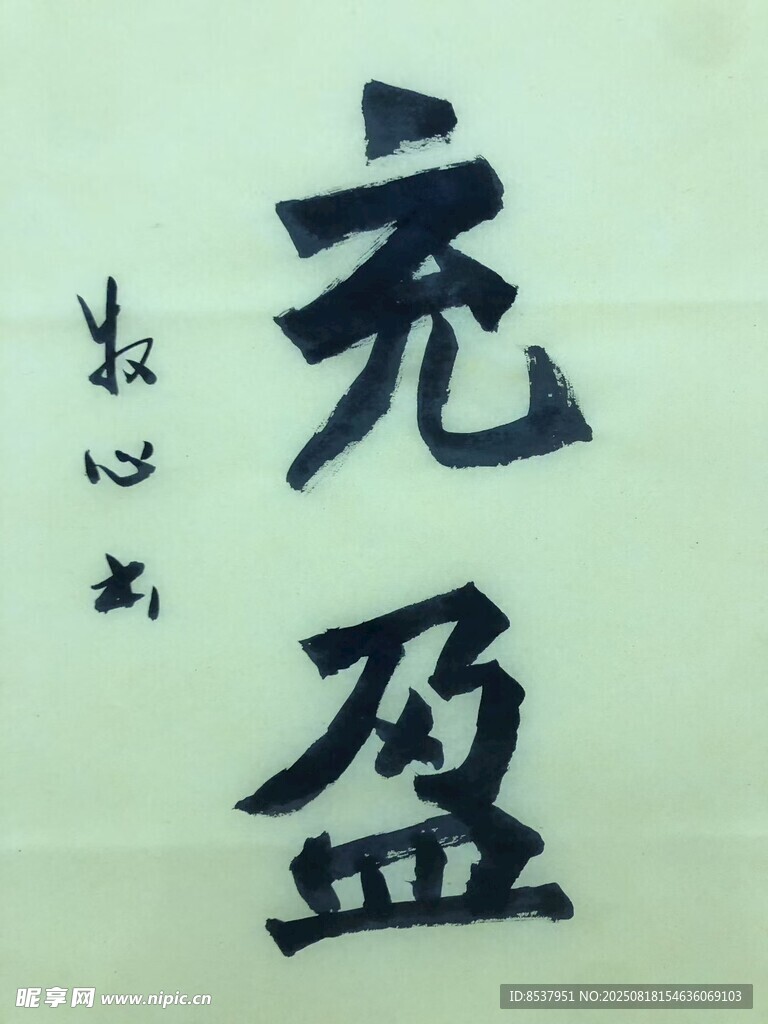 充盈
牧心书
昵享网 www.nipic.cn
ID:8537951 NO:20250818154636069103